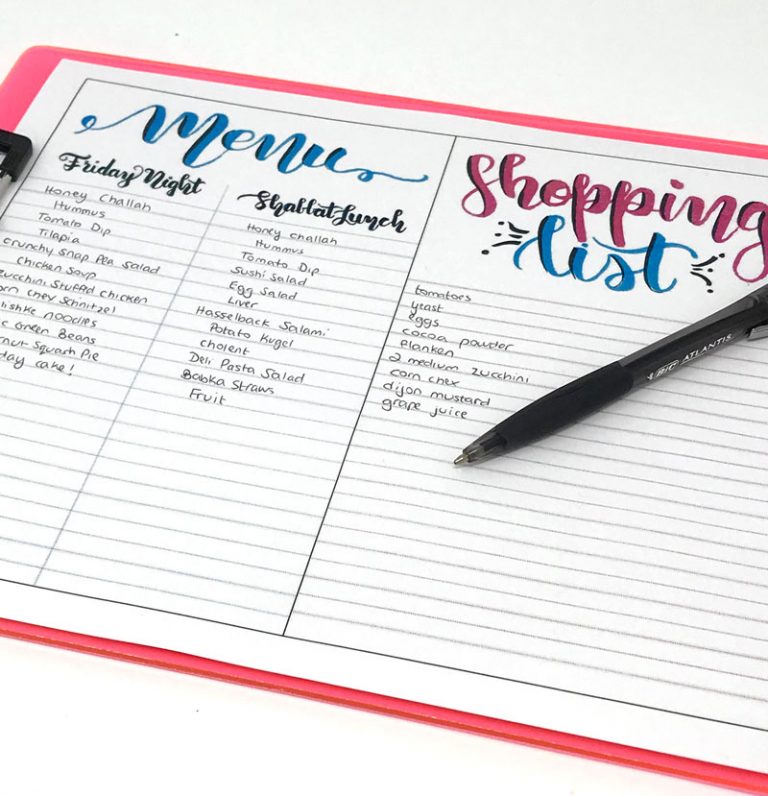 Menu
Friday Night
Honey Challah
Hummus
Tomato Dip
Tilapia
crunchy Snap Pea Salad
chicken Soup
zucchini Stuffed chicken
chex Schnitzel
noodles
Green Beans
Squash Pie
cake!
Shabbat Lunch
Honey challah
Hummus
Tomato Dip
Sushi Salad
Egg Salad
Liver
Hasselback Salami
Potato Kugel
cholent
Deli Pasta Salad
Babka Straws
Fruit
Shopping
list
tomatoes
yeast
eggs
cocoa powder
flanken
2 medium zucchini
corn chex
dijon mustard
grape juice
BIC ATLANTIS